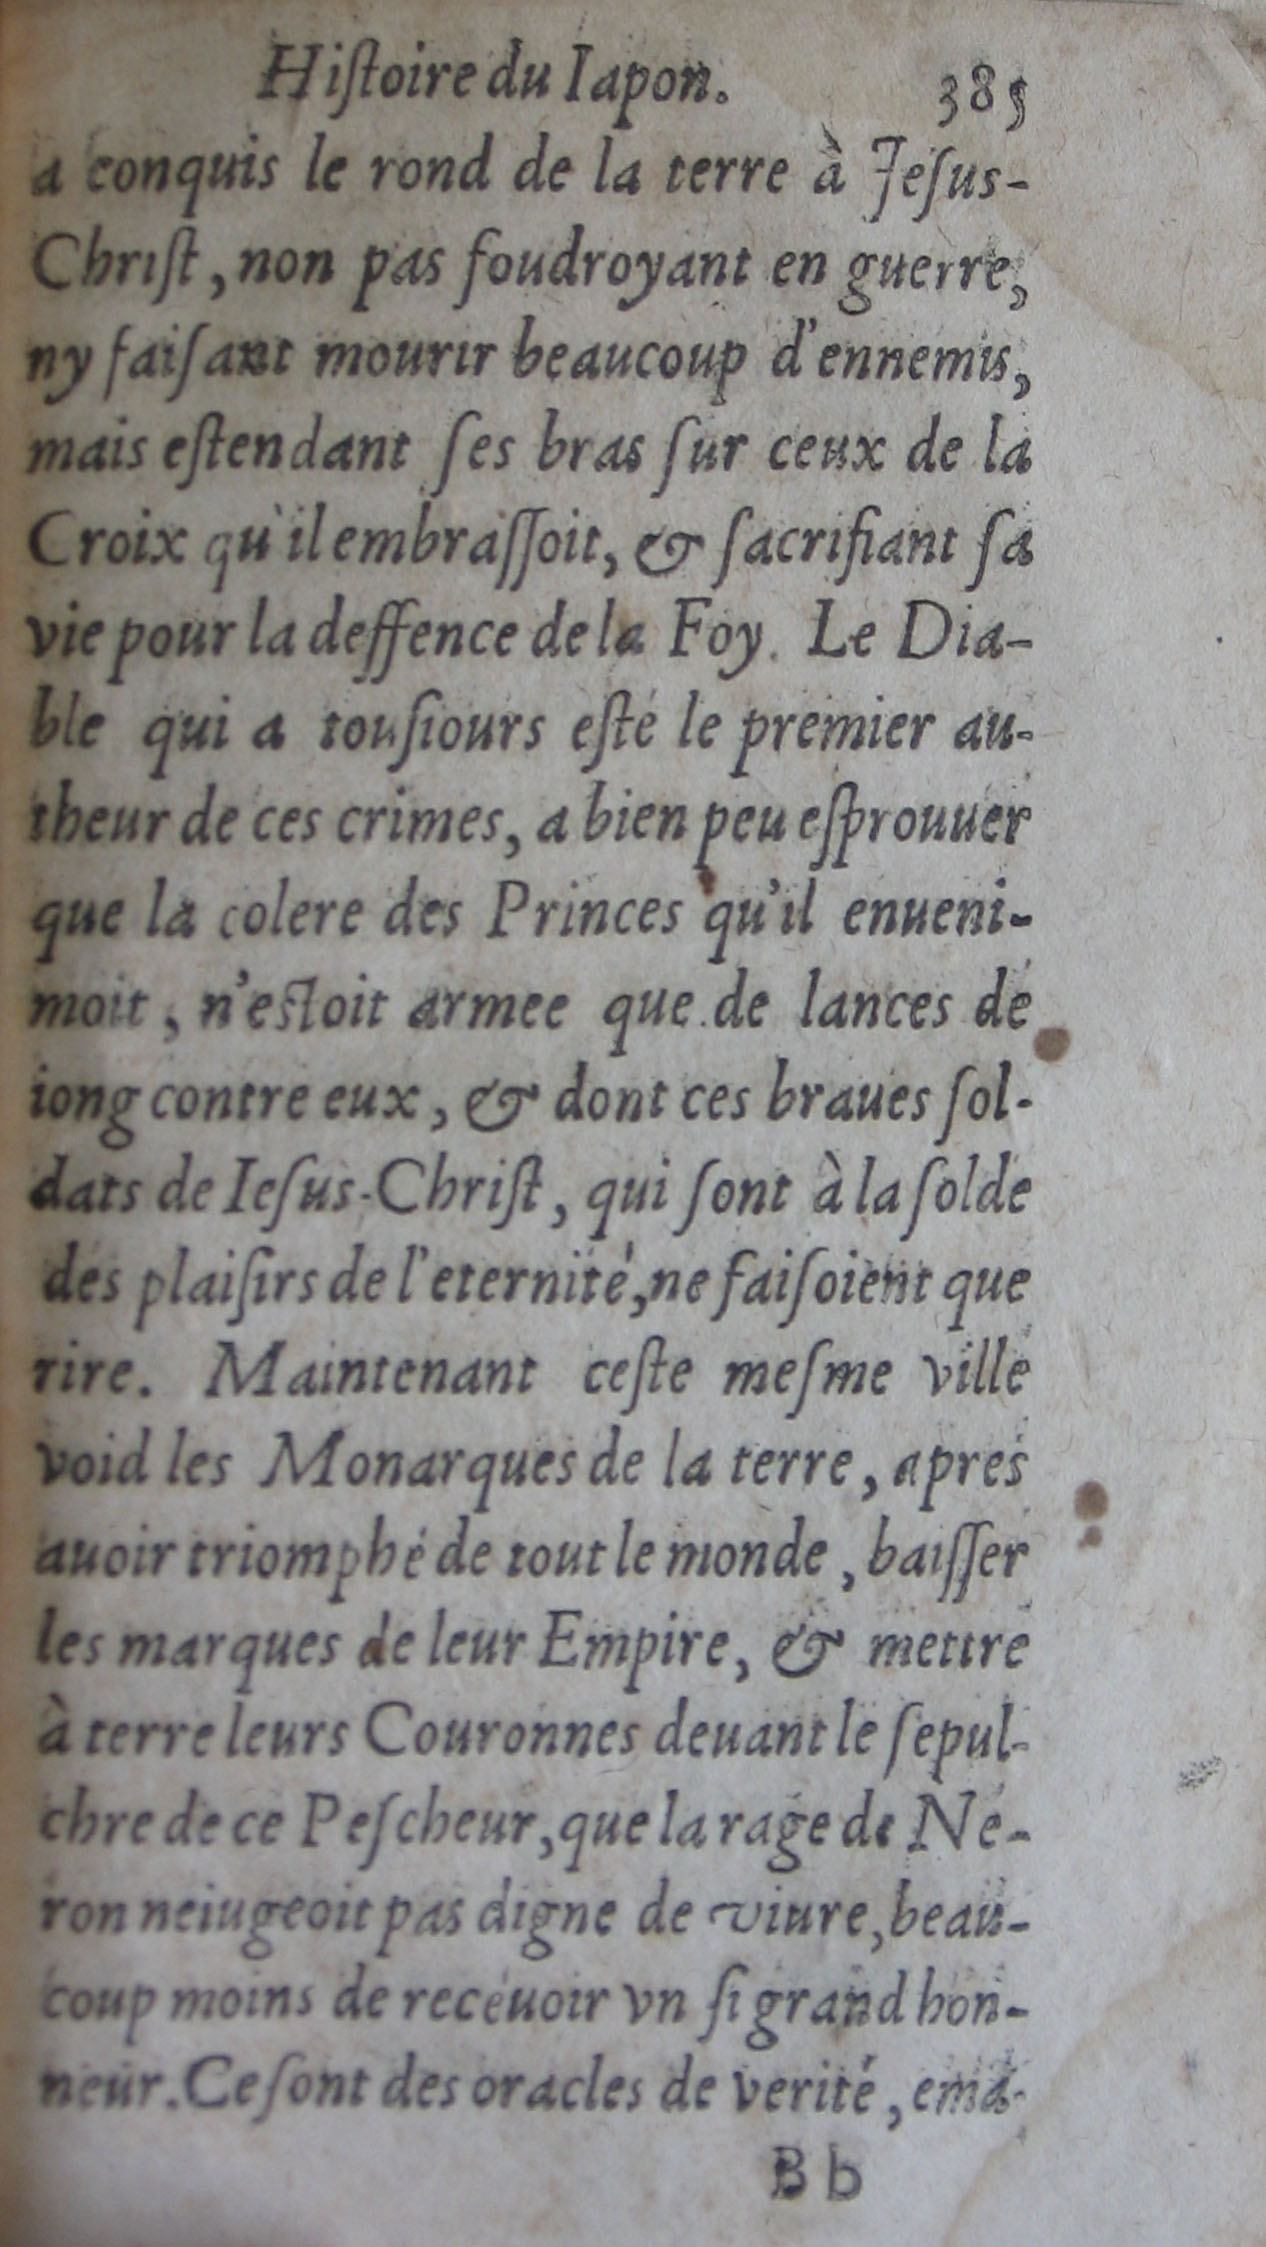 Hiſtoire du Iapon. 385
a conquis le rond de la terre à Jeſus-
Chriſt, non pas foudroyant en guerre,
ny faiſant mourir beaucoup d'ennemis,
mais eſtendant ſes bras ſur ceux de la
Croix qu'il embraſſoit, & ſacrifiant ſa
vie pour la deffence de la Foy. Le Dia-
ble qui a touſiours eſté le premier au-
theur de ces crimes, a bien peu eſprouuer
que la colere des Princes qu'il enueni-
moit, n'eſtoit armee que de lances de
iong contre eux, & dont ces braues ſol-
dats de Ieſus-Chriſt, qui ſont à la ſolde
des plaiſirs de l'eternité, ne faiſoient que
rire. Maintenant ceſte meſme ville
void les Monarques de la terre, apres
auoir triomphé de tout le monde, baiſſer
les marques de leur Empire, & mettre
à terre leurs Couronnes deuant le ſepul-
chre de ce Peſcheur, que la rage de Ne-
ron neiugeoit pas digne de viure, beau-
coup moins de receuoir vn ſi grand hon-
neur. Ce ſont des oracles de verité, ema-
Bb